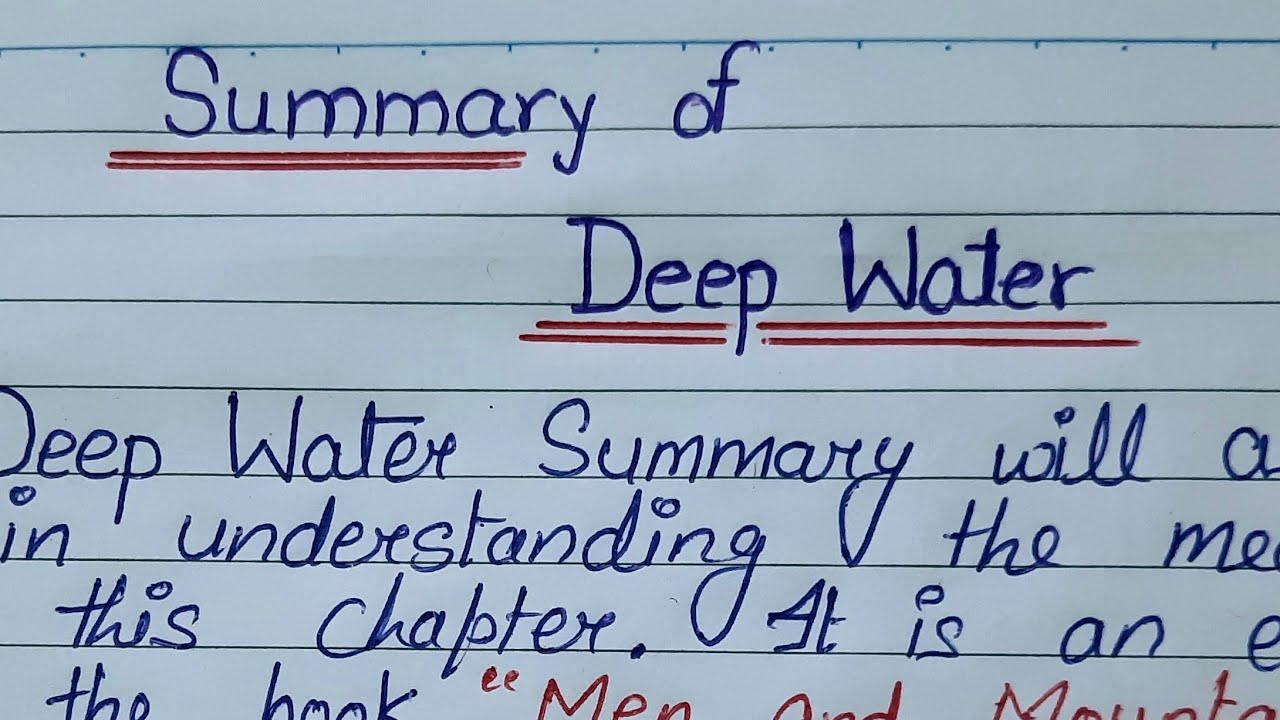 Summary of
Deep Water
Deep Water Summary will a
in understanding the me
this chapter. It is an e
the book "Men and Mounta